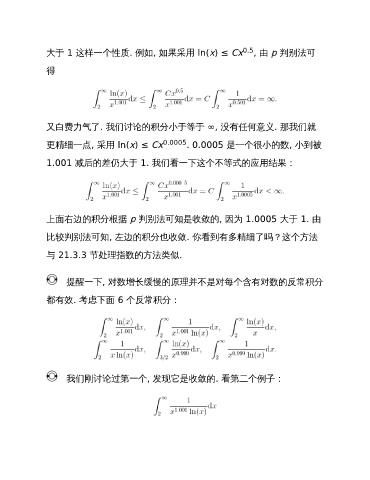 大于 1 这样一个性质. 例如, 如果采用 ln(x) ≤ Cx^0.5, 由 p 判别法可
得
∫_2^∞ ln(x)/x^1.001 dx ≤ ∫_2^∞ Cx^0.5/x^1.001 dx = C ∫_2^∞ 1/x^0.501 dx = ∞.
又白费力气了. 我们讨论的积分小于等于 ∞, 没有任何意义. 那我们就
更精细一点, 采用 ln(x) ≤ Cx^0.0005. 0.0005 是一个很小的数, 小到被
1.001 减后的差仍大于 1. 我们看一下这个不等式的应用结果：
∫_2^∞ ln(x)/x^1.001 dx ≤ ∫_2^∞ Cx^0.000 5/x^1.001 dx = C ∫_2^∞ 1/x^1.0005 dx < ∞.
上面右边的积分根据 p 判别法可知是收敛的, 因为 1.0005 大于 1. 由
比较判别法可知, 左边的积分也收敛. 你看到有多精细了吗？这个方法
与 21.3.3 节处理指数的方法类似.
提醒一下, 对数增长缓慢的原理并不是对每个含有对数的反常积分
都有效. 考虑下面 6 个反常积分：
∫_2^∞ ln(x)/x^1.001 dx, ∫_2^∞ 1/(x^1.001 ln(x)) dx, ∫_2^∞ ln(x)/x dx,
∫_2^∞ 1/(x ln(x)) dx, ∫_3/2^∞ ln(x)/x^0.999 dx, ∫_2^∞ 1/(x^0.999 ln(x)) dx.
我们刚讨论过第一个, 发现它是收敛的. 看第二个例子：
∫_2^∞ 1/(x^1.001 ln(x)) dx